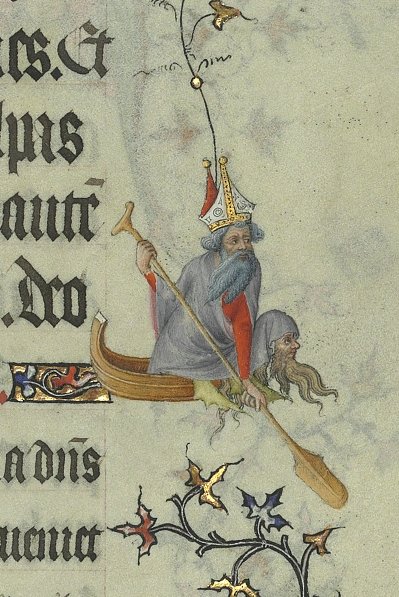 es. Et
lpis
autē
. Pro
a dñs
ueniet